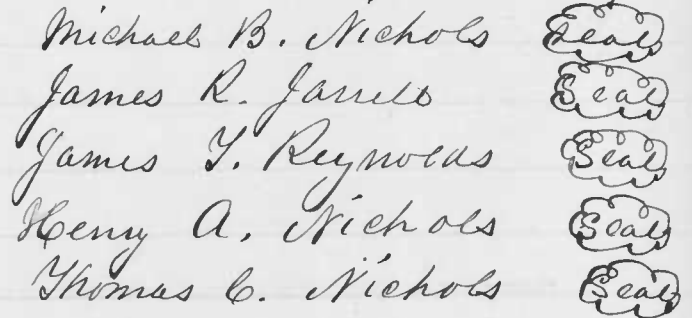 Michael B. Nichols Seal
James R. Jarrell Seal
James T. Reynolds Seal
Henry A. Nichols Seal
Thomas C. Nichols Seal